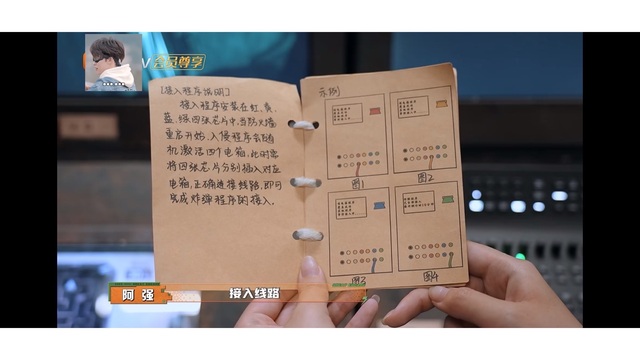 V 会员尊享
[接入程序说明]
接入程序安装在红、黄、
蓝、绿四张芯片中,当防火墙
重启开始,入侵程序会随
机激活四个电箱,此时需
将四张芯片分别插入对应
电箱,正确连接线路,即可
完成炸弹程序的接入。
示例
图1
图2
图3
图4
阿强
接入线路